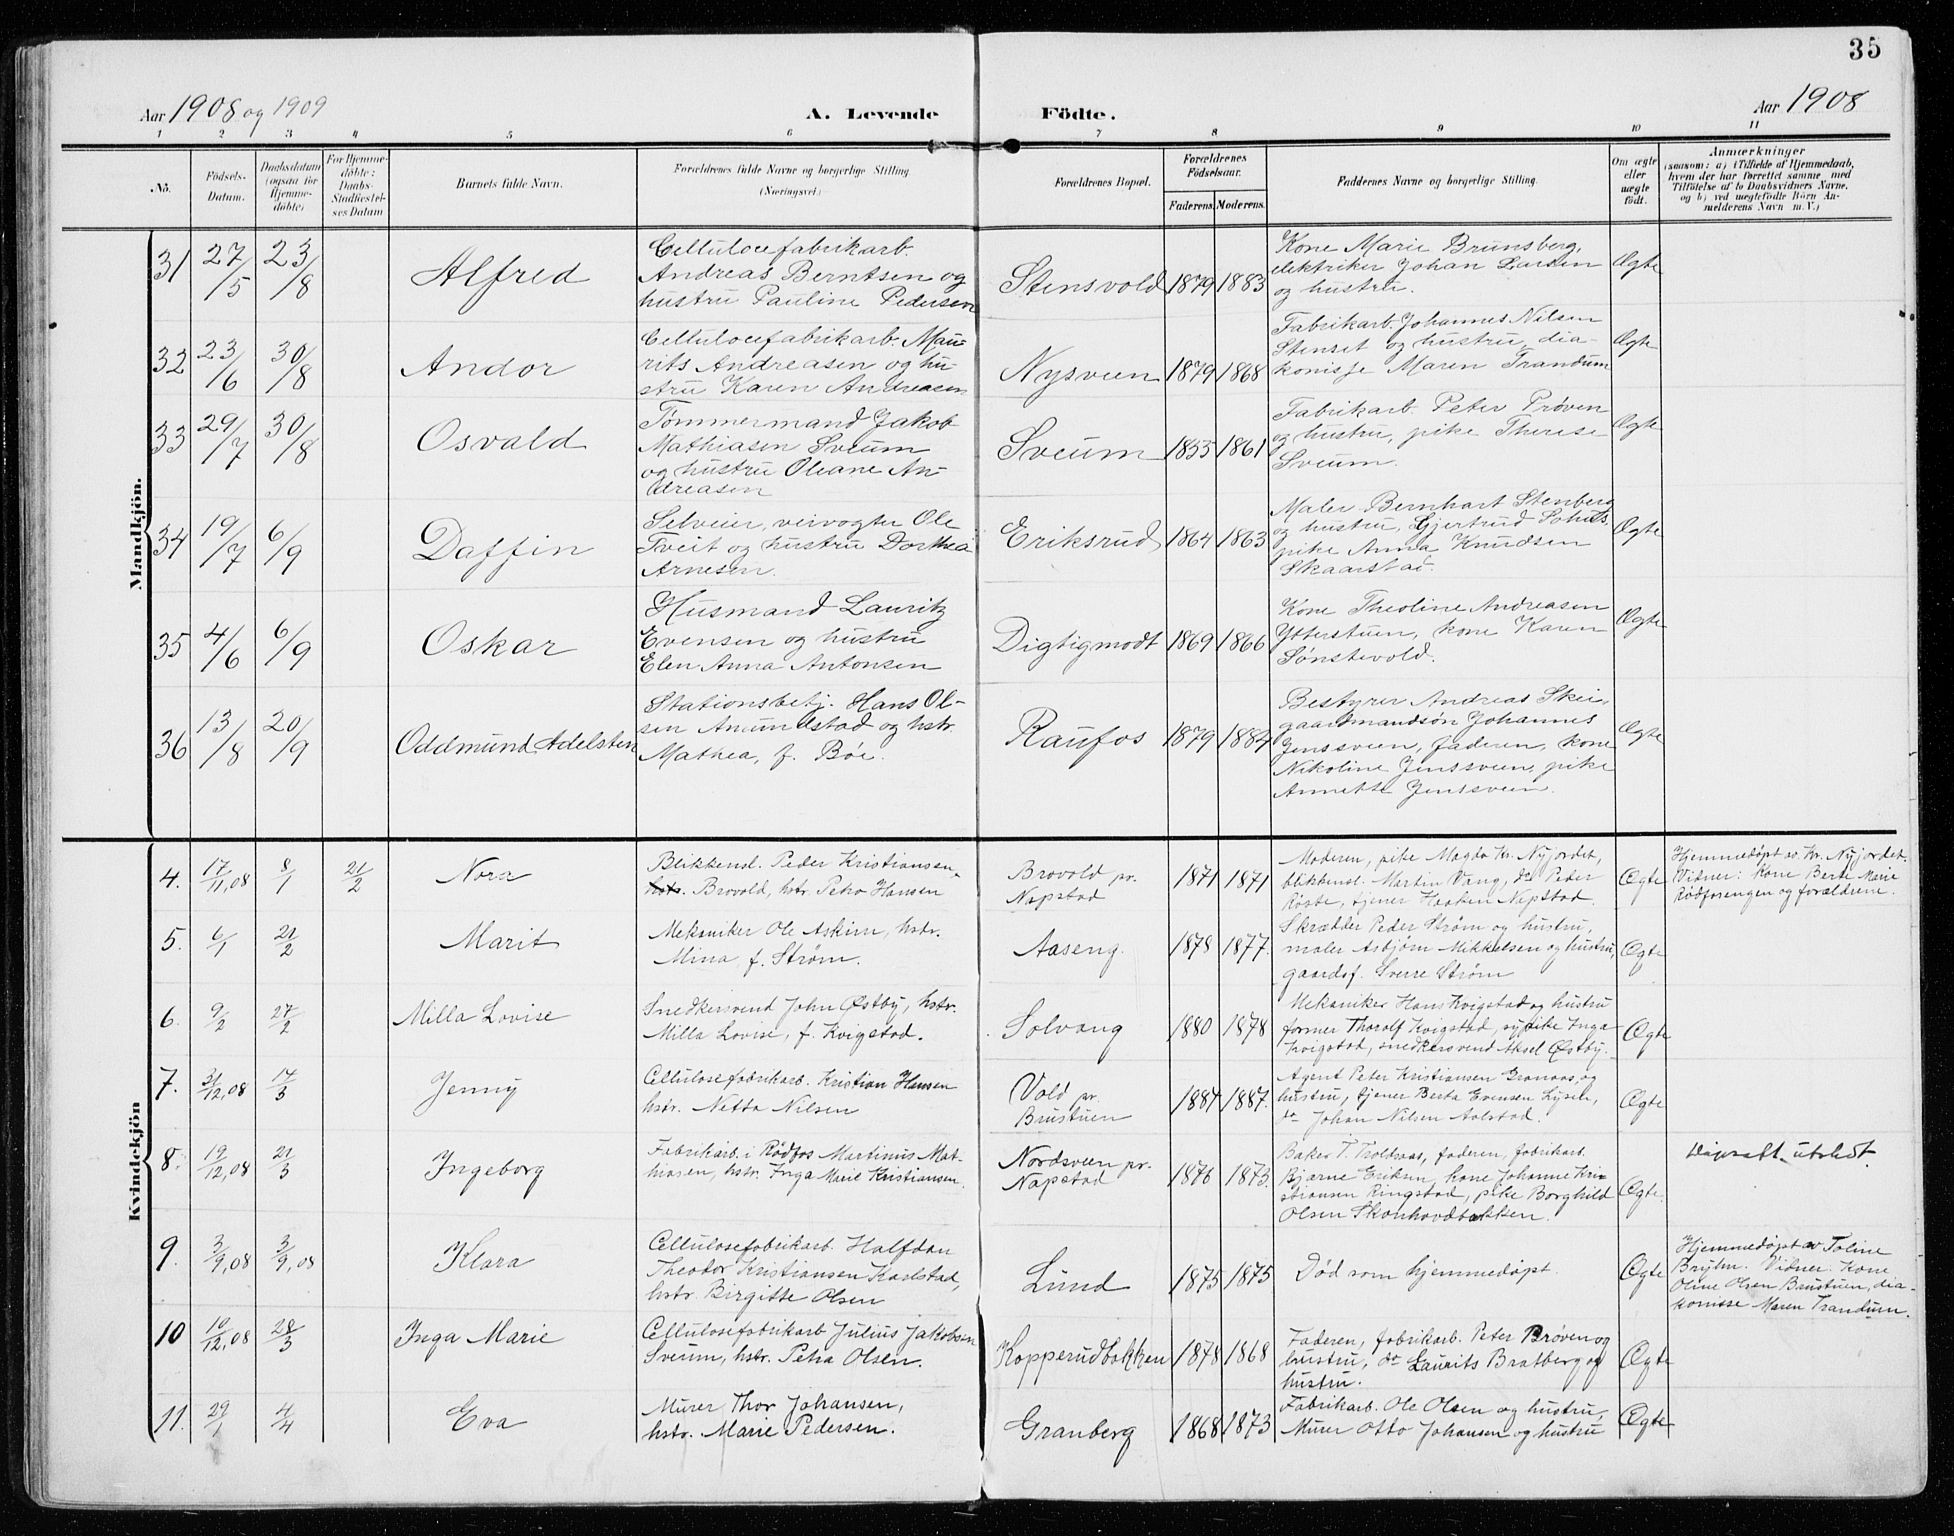 35
Aar 1908 og 1909 A. Levende Födte. Aar 1908
1 2 3 4 5 6 7 8 9 10 11
No. Födsels-Datum. Daabsdatum (ogsaa for Hjemmedöbte) For Hjemmedöbte: Daabs-Stadfæstelses Datum Barnets fulde Navn. Forældrenes fulde Navne og borgerlige Stilling (Næringsvei.) Forældrenes Bopæl. Forældrenes Födselsaar. Faderens. Moderens. Faddernes Navne og borgerlige Stilling. Om ægte eller uægte födt. Anmærkninger (saasom: a) i Tilfælde af Hjemmedaab, hvem der har forrettet samme med Tilföielse af to Daabsvidners Navne, og b) ved uægtefödte Börn Anmelderens Navn m. V.)
Mandkjön.
31 27/5 23/8 Alfred Cellulocefabrikarb. Andreas Berntsen og hustru Pauline Pedersen Stensvold 1879 1883 Kone Marie Brunsberg, elektriker Johan Larsen og hustru. Ægte
32 23/6 30/8 Andor Cellulocefabrikarb. Maurits Andreasen og hustru Karen Andreasen Nysveen 1879 1868 Fabrikarb. Johannes Nilsen Stenset og hustru, diakonisse Maren Trandum Ægte
33 29/7 30/8 Osvald Tømmermand Jakob Mathiasen Sveum og hustru Oleane Andreasen Sveum 1855 1861 Fabrikarb. Peter Prøven og hustru, pike Therese Sveum. Ægte
34 19/7 6/9 Daffin Selveier, veivogter Ole Tveit og hustru Dorthea Arnesen. Eriksrud 1864 1863 Maler Bernhart Stenberg og hustru, Gjertrud pike Anna Knudsen Skaarstad. Ægte
35 4/6 6/9 Oskar Husmand Lauritz Evensen og hustru Elen Anna Antonsen Digtigmodt 1869 1866 Kone Theoline Andreasen Ytterstuen, kone Karen Sønstevold. Ægte
36 13/8 20/9 Oddmund Adelsten Stationsbetj. Hans Olsen Amundstad og hstr. Mathea, f. Bøe. Raufos 1879 1884 Bestyrer Andreas Skei, gaardmandsøn Johannes Jenssveen, faderen, kone Nikoline Jenssveen, pike Annette Jenssveen. Ægte
Kvindekjön
4. 17/11,08 8/1 21/2 Nora Blikkensl. Peder Kristiansen, hstr. Brovold, hstr. Petra Hansen Brovold pr. Napstad 1871 1871 Moderen, pike Magda Kr. Nyjordet, blikkensl. Martin Vang, do Peder Røste, tjener Haaken Napstad. Ægte Hjemmedøpt av Kr. Nyjordet. Vidner: Kone Berte Marie Rødfosengen og forældrene.
5. 6/1 21/2 Marit Mekaniker Ole Askim, hstr. Mina f. Strøm. Aaseng. 1878 1877. Skrædder Peder Strøm og hustru, maler Asbjørn Mikkelsen og hustru, gaardsf. Sverre Strøm Ægte
6. 9/2 27/2 Milla Lovise Snedkersvend John Østby, hstr. Milla Lovise, f. Kvigstad. Solvang 1880 1878 Mekaniker Hans Kvigstad og hustru former Thorolf Kvigstad, sypike Inga Kvigstad, snedkersvend Aksel Østby. Ægte
7. 31/12,08 17/3 Jenny Cellulosefabrikarb. Kristian Hansen hstr. Netta Nilsen Vold pr. Brustuen 1884 1887. Agent Peter Kristiansen Granaas, og hustru, tjener Berta Evensen Lysen, do Johan Nilsen Aalstad. Ægte
8. 19/12,08 21/3 Ingeborg Fabrikarb. i Rødfos Martinus Mathiasen, hstr. Inga Marie Kristiansen. Nordsveen pr. Napstad 1876 1873. Baker T. Troldvas, faderen, fabrikarb. Bjarne Eriksen, kone Johanne Kristiansen Ringstad, pike Borghild Olsen Skonhovdbakken. Ægte. Dåpsatt. utstedt.
9. 3/9,08 3/9,08 Klara Cellulosefabrikarb. Halfdan Theodor Kristiansen Karlstad, hstr. Birgitte Olsen Lund 1875 1875 Død som hjemmedøpt. Ægte Hjemmedøpt av Toline Bryhn. Vidner: Kone Oline Olsen Brustuen, diakonisse Maren Trandum.
10 10/12,08 28/3 Inga Marie Cellulosefabrikarb. Julius Jakobsen Sveum, hstr. Petra Olsen. Kopperudbakken 1878 1868 Faderen, fabrikarb. Peter Prøven og hustru, do Laurits Bratberg og hustru. Ægte
11. 29/1 4/4 Eva Murer Thor Johansen, hstr. Marie Pedersen. Granberg 1868 1873 Fabrikarb. Ole Olsen og hustru, Murer Otto Johansen og hustru Ægte